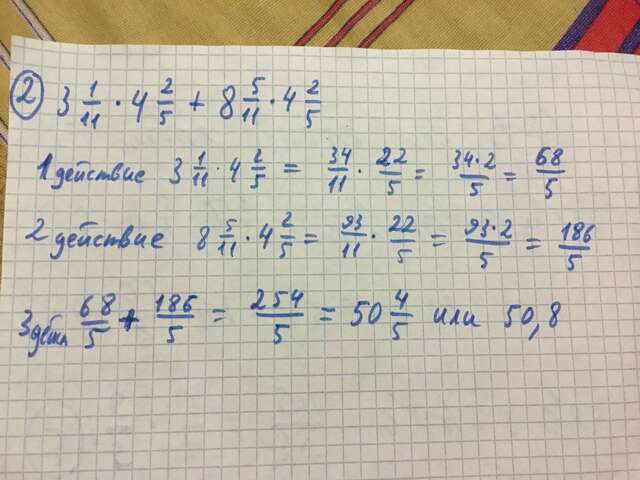 2 3 1/11 · 4 2/5 + 8 5/11 · 4 2/5
1 действие 3 1/11 · 4 2/5 = 34/11 · 22/5 = 34·2/5 = 68/5
2 действие 8 5/11 · 4 2/5 = 93/11 · 22/5 = 93·2/5 = 186/5
3 дейст 68/5 + 186/5 = 254/5 = 50 4/5 или 50,8